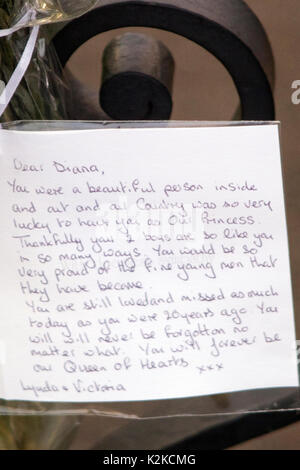 Dear Diana,
You were a beautiful person inside
and out and our Country was so very
lucky to have you as our Princess.
Thankfully your 2 boys are so like you
in so many ways. You would be so
very proud of the fine young men that
they have become.
You are still loved and missed as much
today as you were 20 years ago. You
will will never be forgotton no
matter what. You will forever be
our Queen of Hearts xxx
Lynda & Victoria
alamy
Image ID: K2KCMG
www.alamy.com